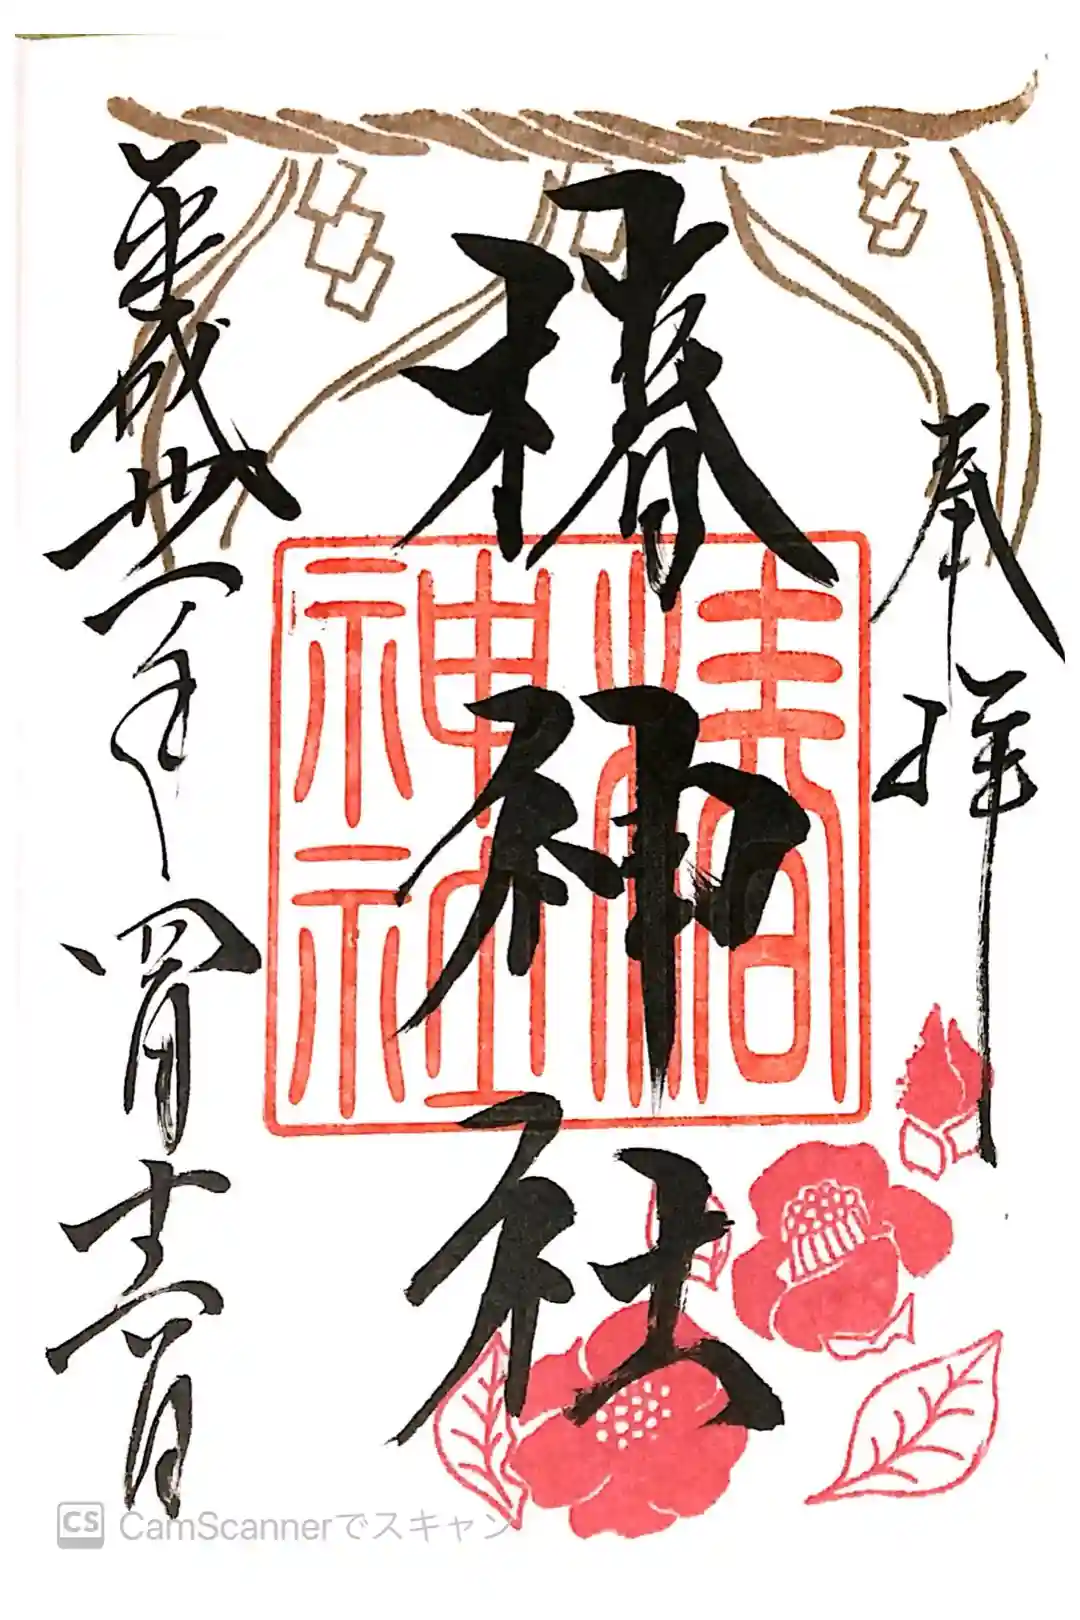 奉拝
椿神社
椿
神社
平成丗一年 四月
CS CamScannerでスキャン